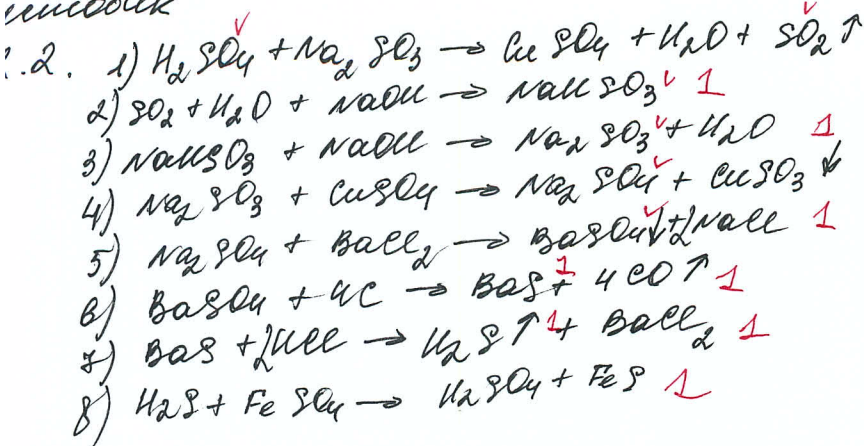 .2. 1) H₂SO₄ + Na₂SO₃ → CuSO₄ + H₂O + SO₂↑
2) SO₂ + H₂O + NaOH → NaHSO₃ 1
3) NaHSO₃ + NaOH → Na₂SO₃ + H₂O 1
4) Na₂SO₃ + CuSO₄ → Na₂SO₄ + CuSO₃↓
5) Na₂SO₄ + BaCl₂ → BaSO₄↓ + 2NaCl 1
6) BaSO₄ + 4C → BaS + 4CO↑ 1 1
7) BaS + 2HCl → H₂S↑ + BaCl₂ 1 1
8) H₂S + FeSO₄ → H₂SO₄ + FeS 1